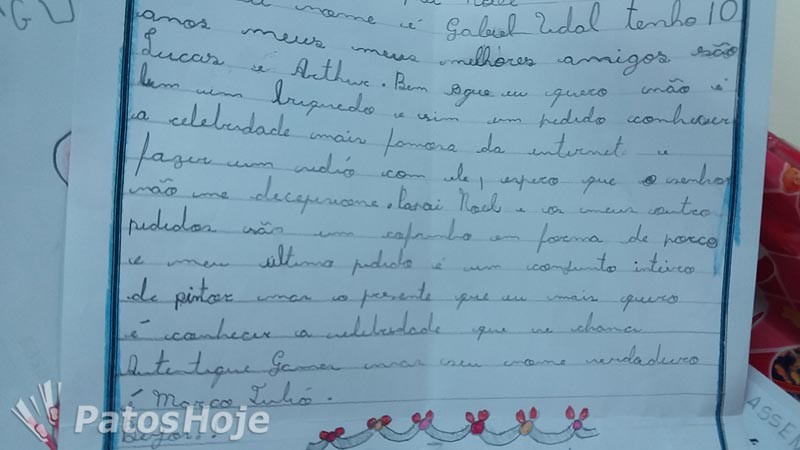 nome é Gabriel Udal tenho 10
anos meus meus melhores amigos são
Lucas e Arthur. Bem oque eu quero não é
bem um briquedo e sim um pedido conhecer
a celebridade mais famosa da internet e
fazer um vidió com ele, espero que o senhor
não me decepcione. Papai Noel e os meus outro
pedidos são um cofrinho em forma de porco
e meu último pedido é um conjunto inteiro
de pintor mas o presente que eu mais quero
é conhecer a celebridade que se chama
Autentique Games mas seu nome verdadeiro
é Marco Tulió.
PatosHoje
ASSEN